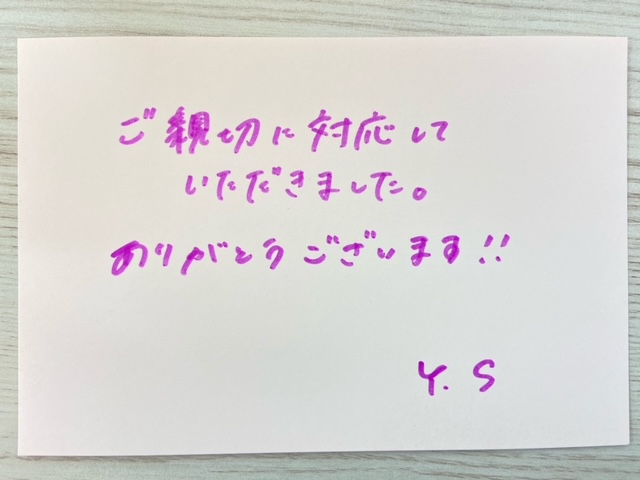 ご親切に対応して
いただきました。
ありがとうございます!!
Y. S